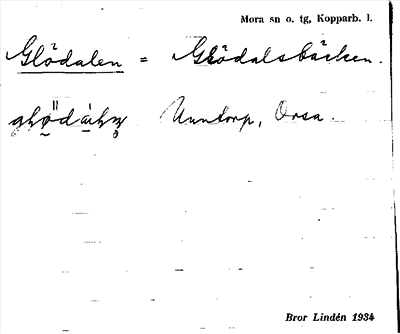 Mora sn o. tg, Kopparb. l.
Glödalen = Glödalsbäcken.
Unntorp, Orsa.
Bror Lindén 1934